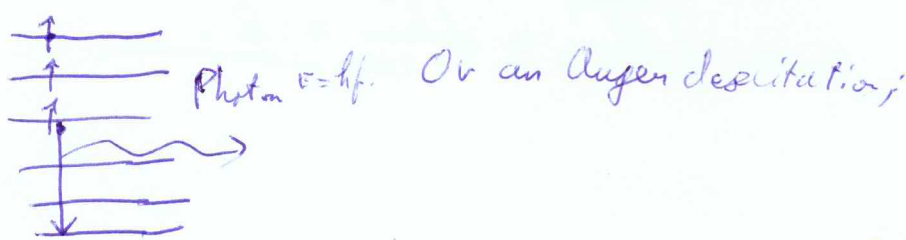 Photon E=hf. Or an Auger desexitation;